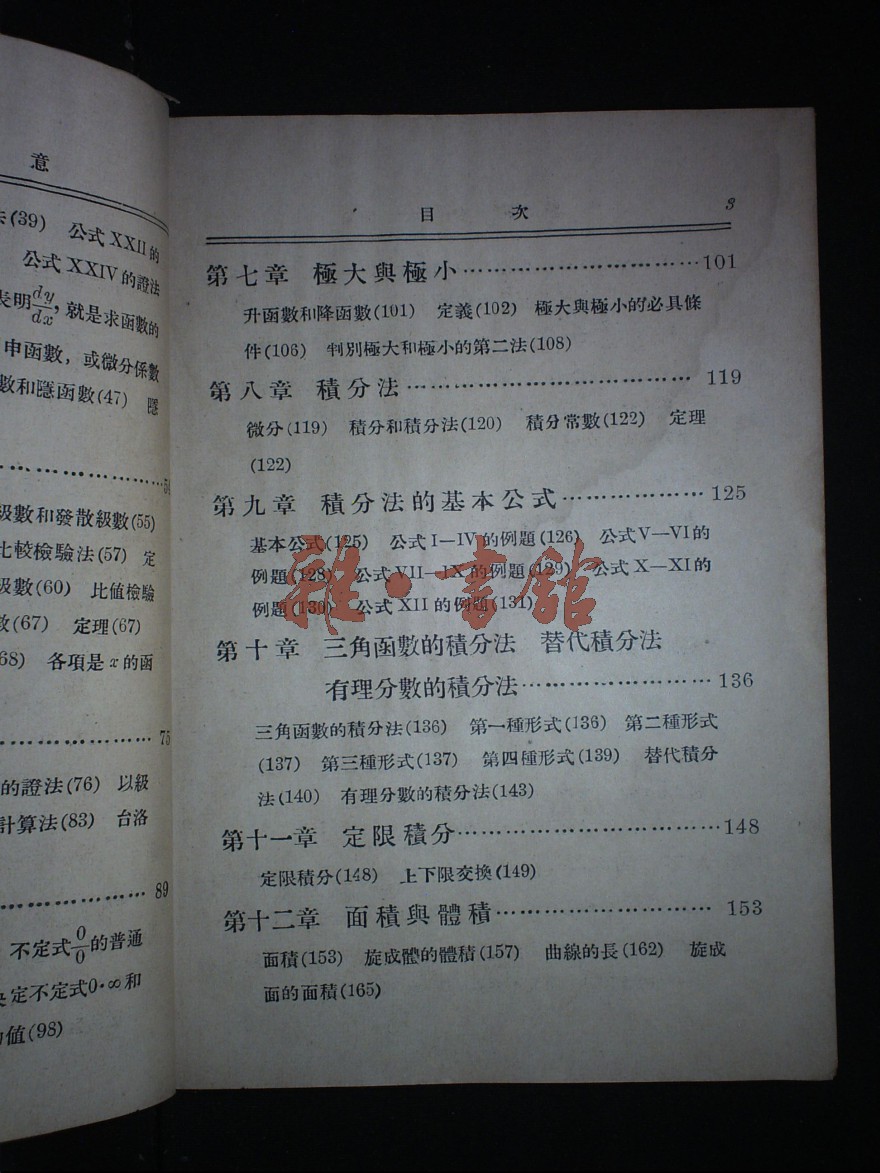 意
(39) 公式 XXII 的
公式 XXIV 的證法
表明dy/dx, 就是求函數的
申函數，或微分係數
數和隱函數(47) 隱
級數和發散級數(55)
比較檢驗法(57) 定
級數(60) 比值檢驗
(67) 定理(67)
68) 各項是 x 的函
75
的證法(76) 以級
計算法(83) 台洛
89
不定式0/0的普通
定不定式0·∞和
值(98)
目 次 3
第七章 極大與極小……………………………101
升函數和降函數(101) 定義(102) 極大與極小的必具條
件(106) 判別極大和極小的第二法(108)
第八章 積分法……………………………… 119
微分(119) 積分和積分法(120) 積分常數(122) 定理
(122)
第九章 積分法的基本公式……………… 125
基本公式(125) 公式 I—IV 的例題(126) 公式 V—VI 的
例題(128) 公式 VII—IX 的例題(129) 公式 X—XI 的
例題(130) 公式 XII 的例題(131)
第十章 三角函數的積分法 替代積分法
有理分數的積分法…………………… 136
三角函數的積分法(136) 第一種形式(136) 第二種形式
(137) 第三種形式(137) 第四種形式(139) 替代積分
法(140) 有理分數的積分法(143)
第十一章 定限積分……………………………148
定限積分(148) 上下限交換(149)
第十二章 面積與體積……………………… 153
面積(153) 旋成體的體積(157) 曲線的長(162) 旋成
面的面積(165)
雅·書館